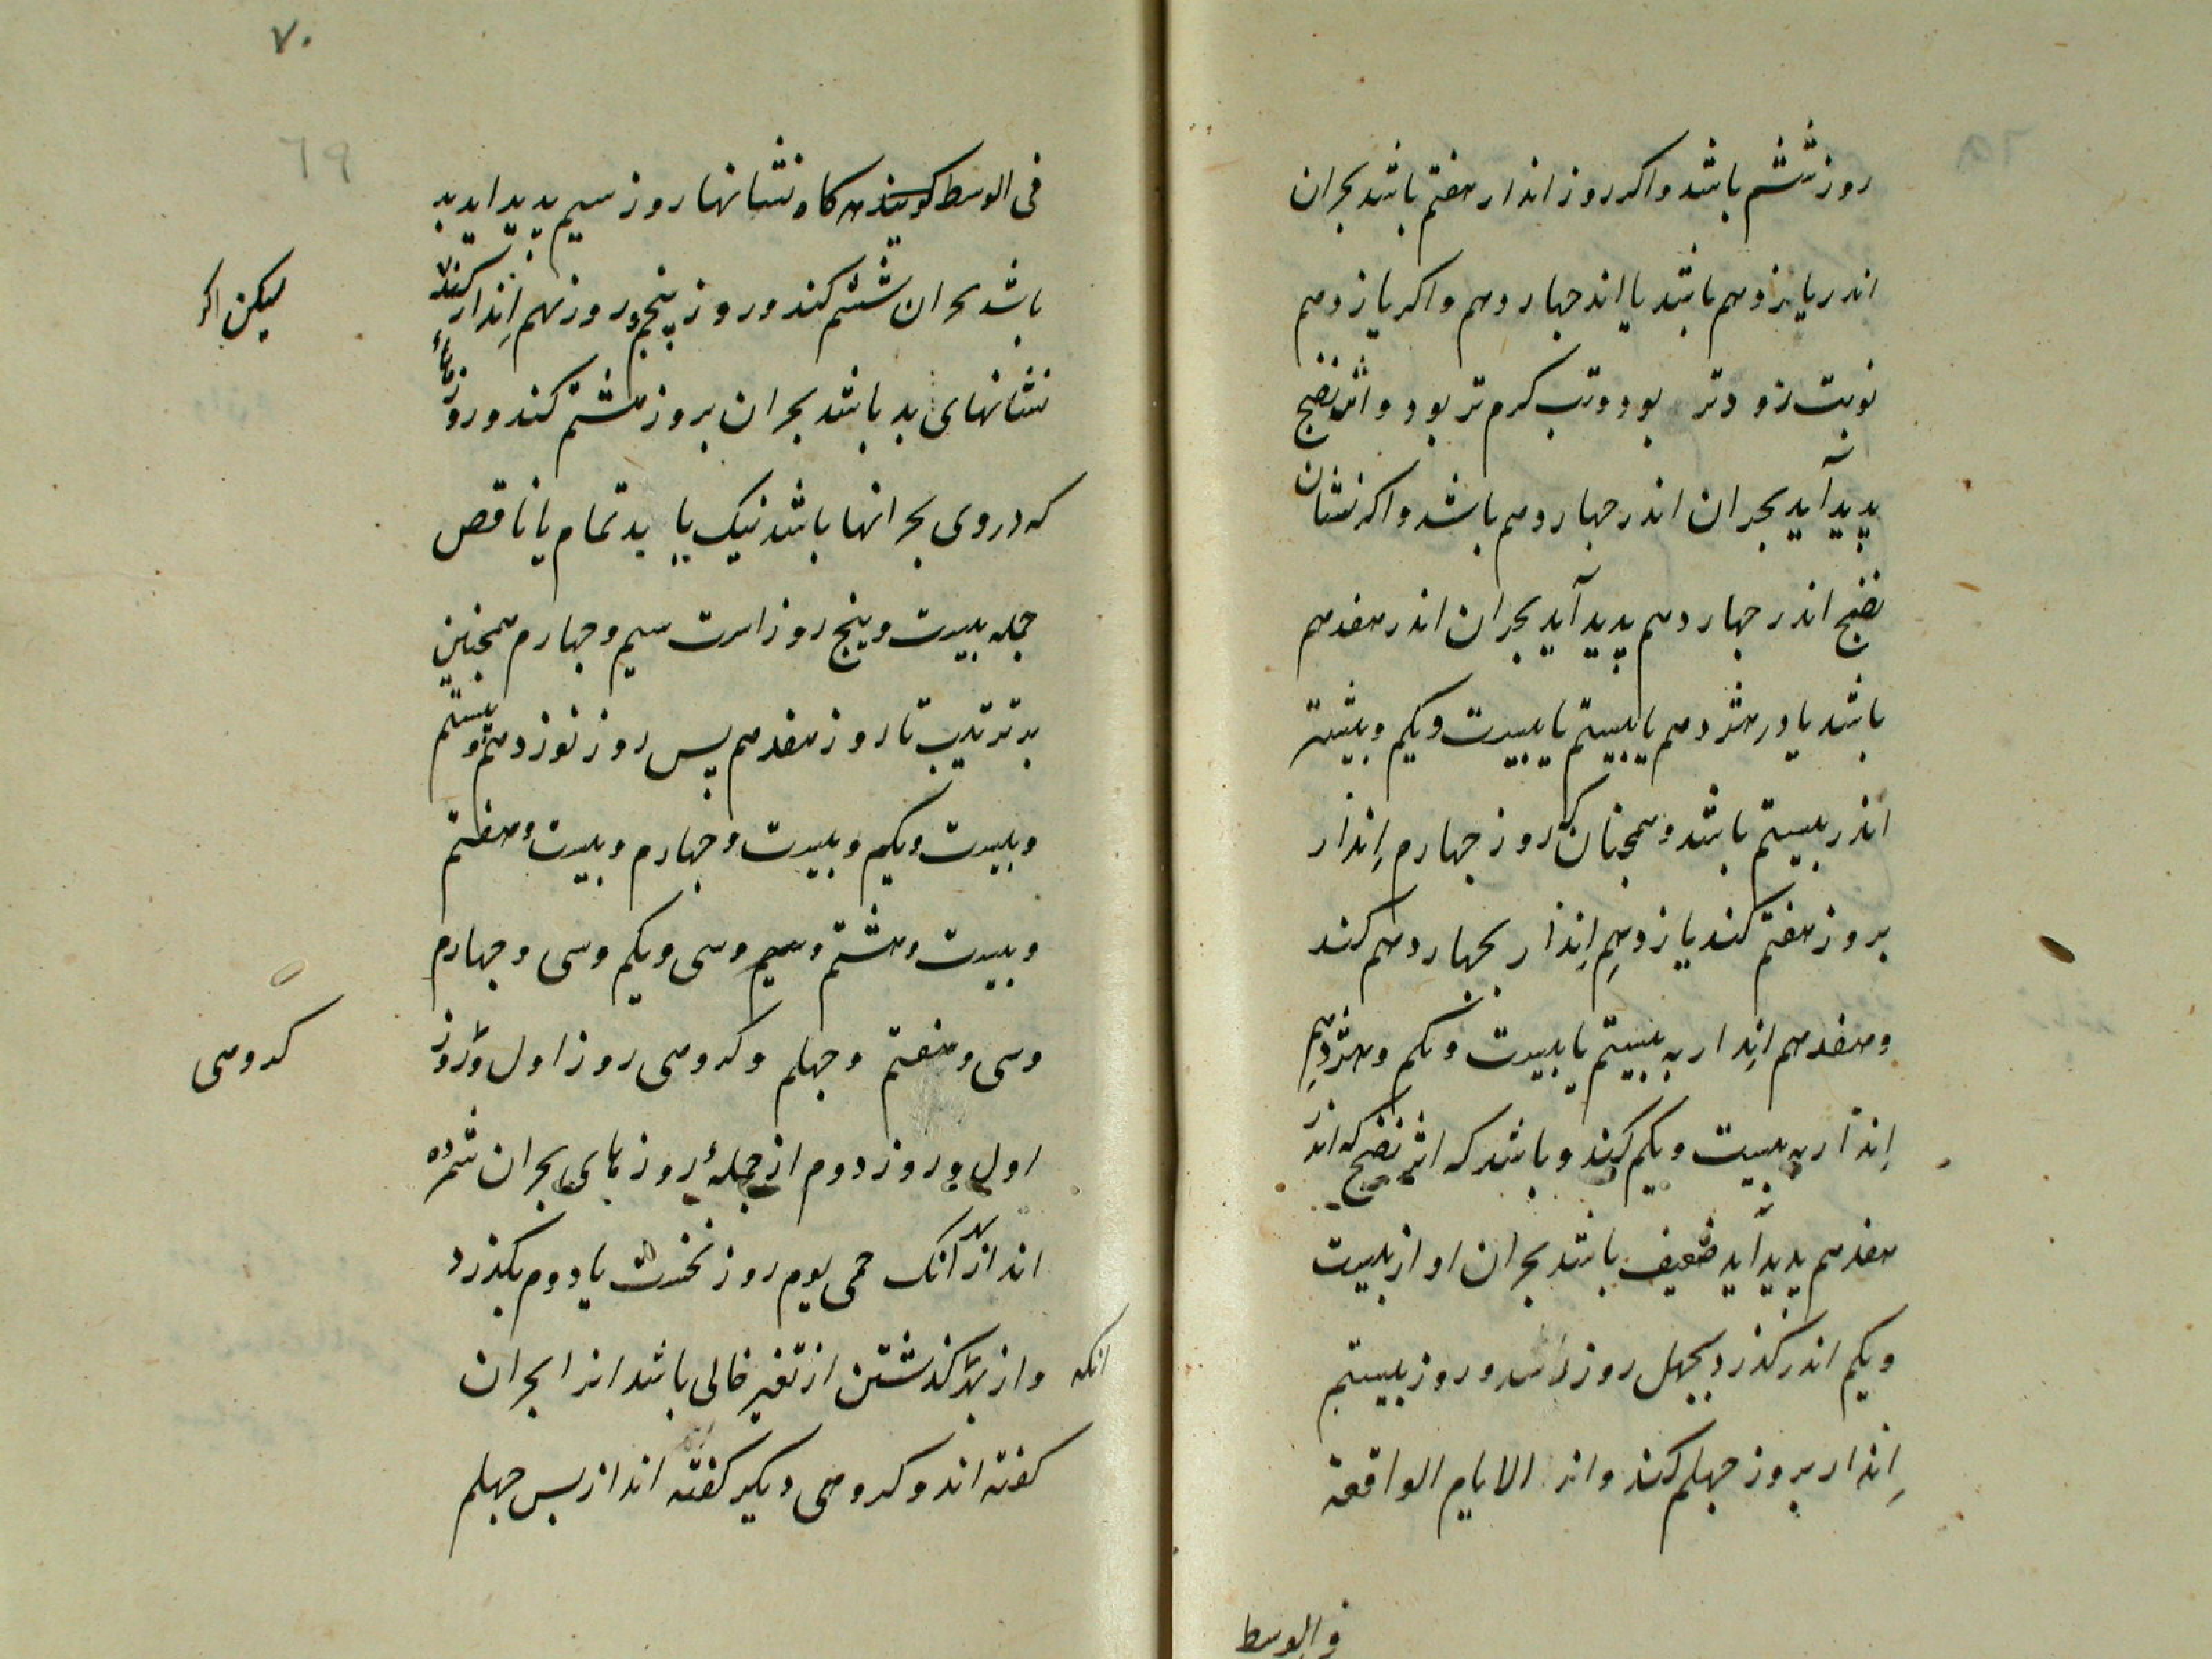 ٦٨
روز ششم باشد و اکر روز انذار هفتم باشد بحران
اندر یازدهم باشد یا اندر جهاردهم و اکر یازدهم
نوبت زودتر بود و تب کرم تر بود و اثر نضج
پدید آید بحران اندر جهاردهم باشد و اکر نشان
نضج اندر جهاردهم پدید آید بحران اندر هفدهم
باشد یا در هژدهم یا بیستم یا بیست ویکم و بیشتر
اندر بیستم باشد و همجنان که روز جهارم اِنذار
بروز هفتم کند یازدهم اِنذار بجهاردهم کند
و هفدهم اِنذار به بیستم یا بیست ویکم و هژدهم
اِنذار به بیست ویکم کند و باشد که اثر نضج که اندر
هفدهم پدید آید ضعیف باشد بحران او از بیست
ویکم اندر کذرد بجهل روز رسد و روز بیستم
اِنذار بروز جهلم کند و اندر الایام الواقعة
فی الوسط
٧٠
٦٩
فی الوسط کویند هر کاه نشانها روز سیم پدید اید بد
باشد بحران ششم کند و روز پنجم و روز نهم اِنذار کنند
لیکن اکر
نشانهای بد باشد بحران بروز هشتم کند و روزهاء
که دروی بحرانها باشد نیک یا بد تمام یا ناقص
جمله بیست و پنج روز است سیم و جهارم همجنین
به ترتیب تا روز هفدهم پس روز نوزدهم و بیستم
و بیست ویکم و بیست و جهارم و بیست و هفتم
و بیست و هشتم و سیم و سی ویکم و سی و جهارم
و سی و هفتم و جهلم و کروهی روز اول و روز
کروهی
اول و روز دوم از جملهٔ روزهای بحران شمرده
اند از بهر آنک حمی یوم روز نخست یا دوم بکذرد
و از بهر کذشتن از تغیر خالی باشد انرا بحران
انکه
کفته اند و کروهی دیکر کفته اند از پس جهلم